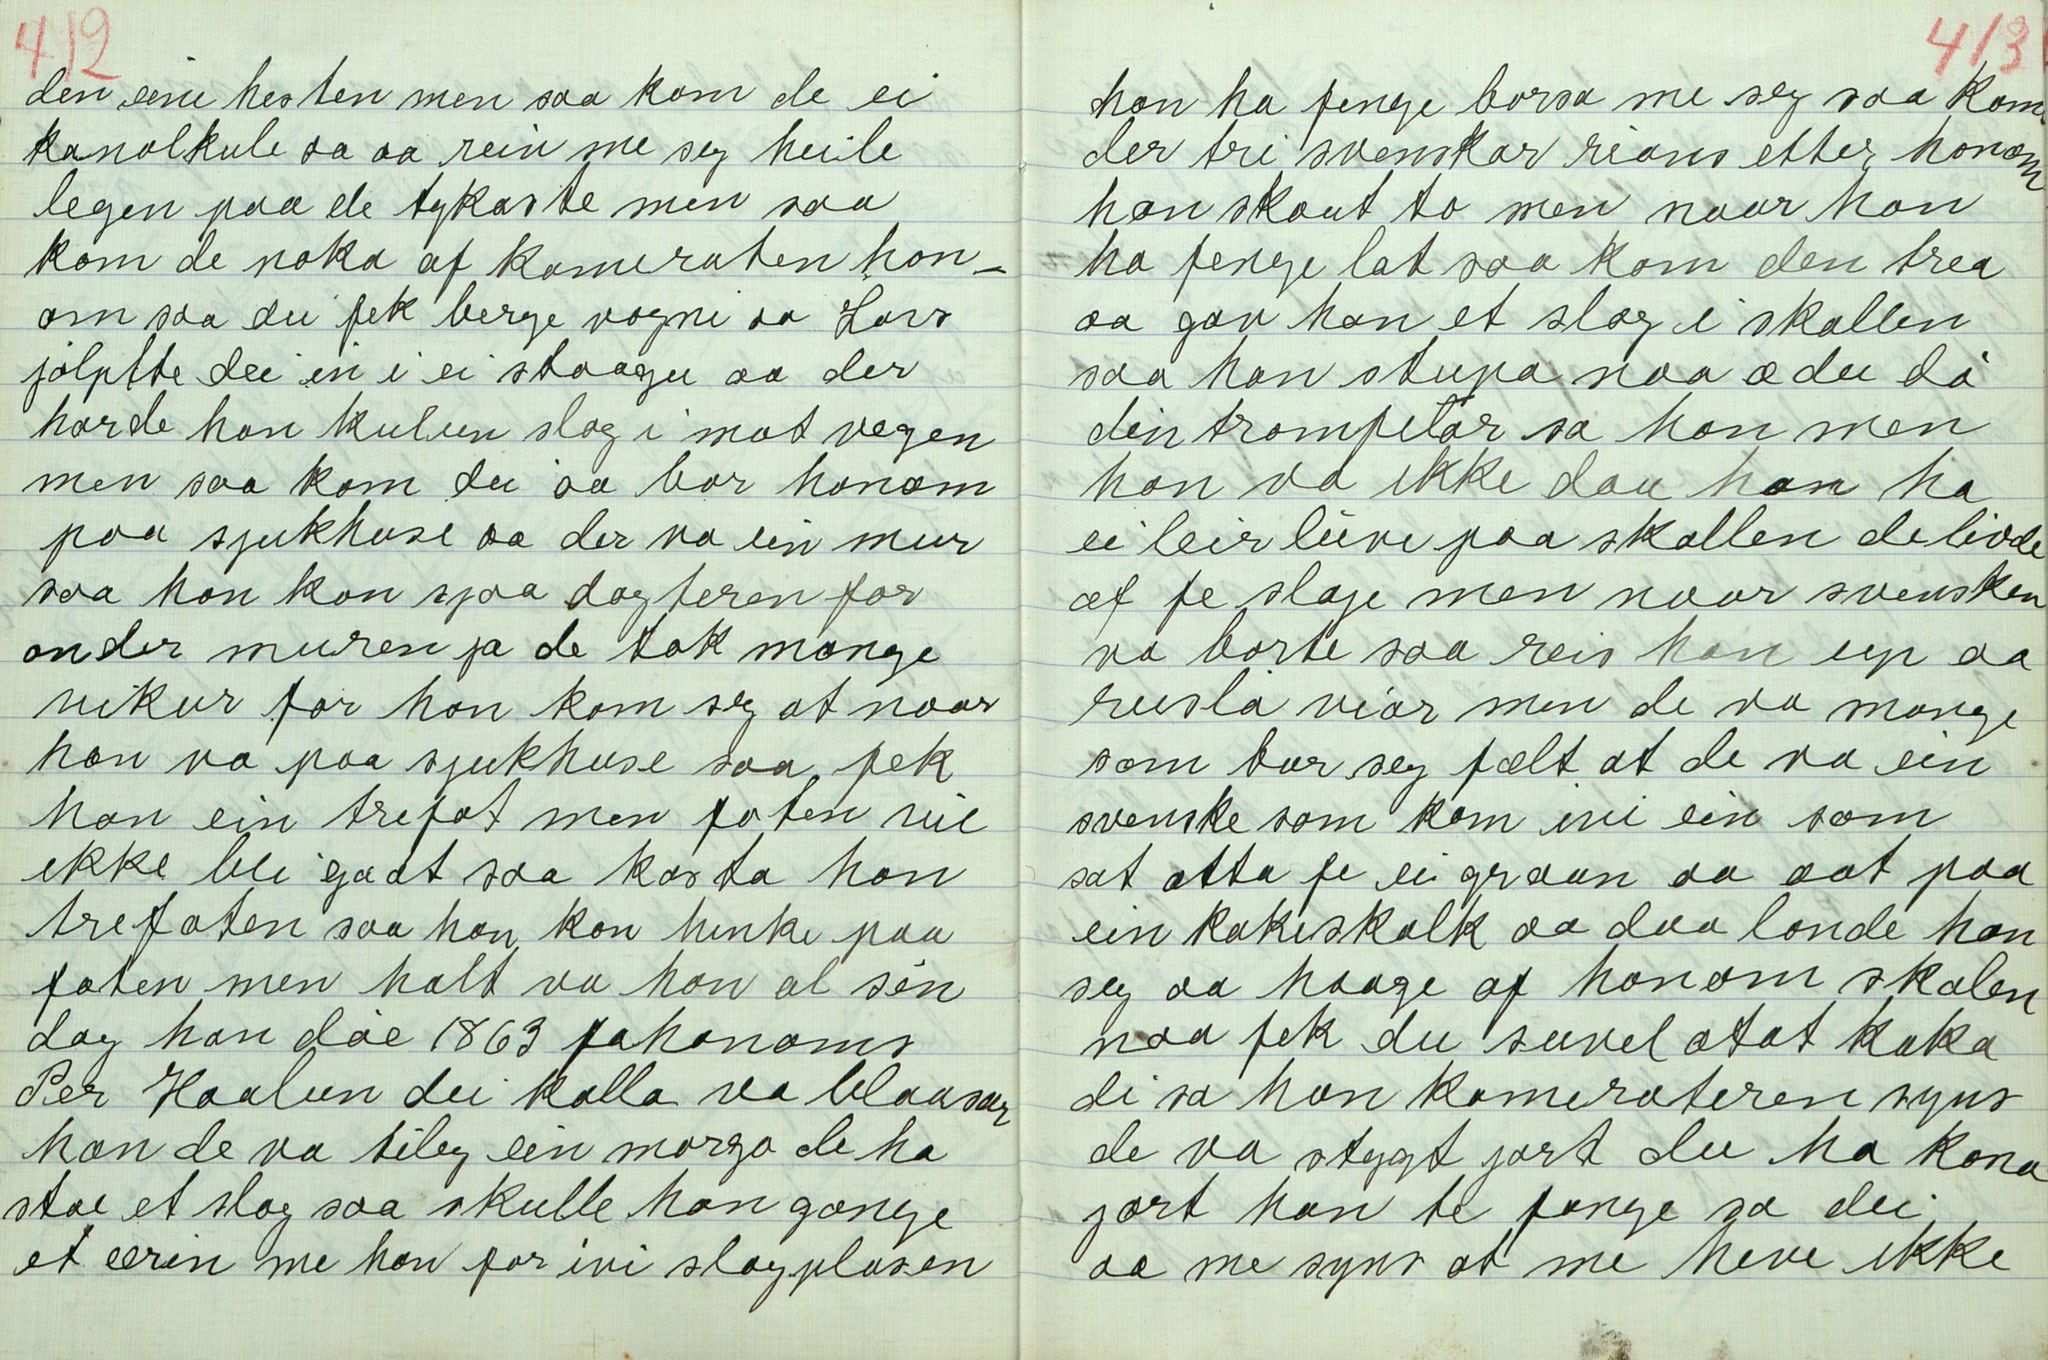 412
den eine hesten men saa kom de ei
kanolkule sa aa rein me seg heile
legen paa de tykaste men saa
kom de noka af kameraten hon-
om saa dei fek berge vogni aa Lars
jolpte dei in i ei stoogu aa der
horde han kulun slog i mot vegen
men saa kom dei aa bar honom
paa sjukhuse aa der va ein mur
saa han kon sjaa dagferen for
onder muren ja de tok mange
vikur for han kom seg at naar
han va paa sjukhuse saa fek
han ein trefot men foten vil
ikke bli gaat saa kasta han
trefoten saa han kon hinke paa
foten men halt va han al sin
dag han döe 1863 fahonoms
Per Haalien dei kalla va blaasar
han de va tileg ein morgo de ha
stae et slag saa skulle han gange
et ærin me han for ivi slagplasen
413
han ha fenge borsa me seg saa kom
der tri svenskar rians etter honom
han skout to men naar han
ha fenge lat saa kom den trea
aa gav han et slag i skallen
saa han stupa naa æ du dö
din trompetar sa han men
han va ikke dau han ha
ei leirlüve paa skallen de livde
af fe slage men naar svensken
va borte saa reis han up aa
rusla viar men de va mange
som bar seg fælt at de va ein
svenske som kom ivi ein som
sat atta fe ei graan aa aat paa
ein kakeskalk aa daa londe han
seg aa hoage af honom skalen
naa fek du suvel atat kaka
di sa han kameraten syns
de va stygt jort du ha kona
jort han te fange sa dei
aa me syns at me heve ikke